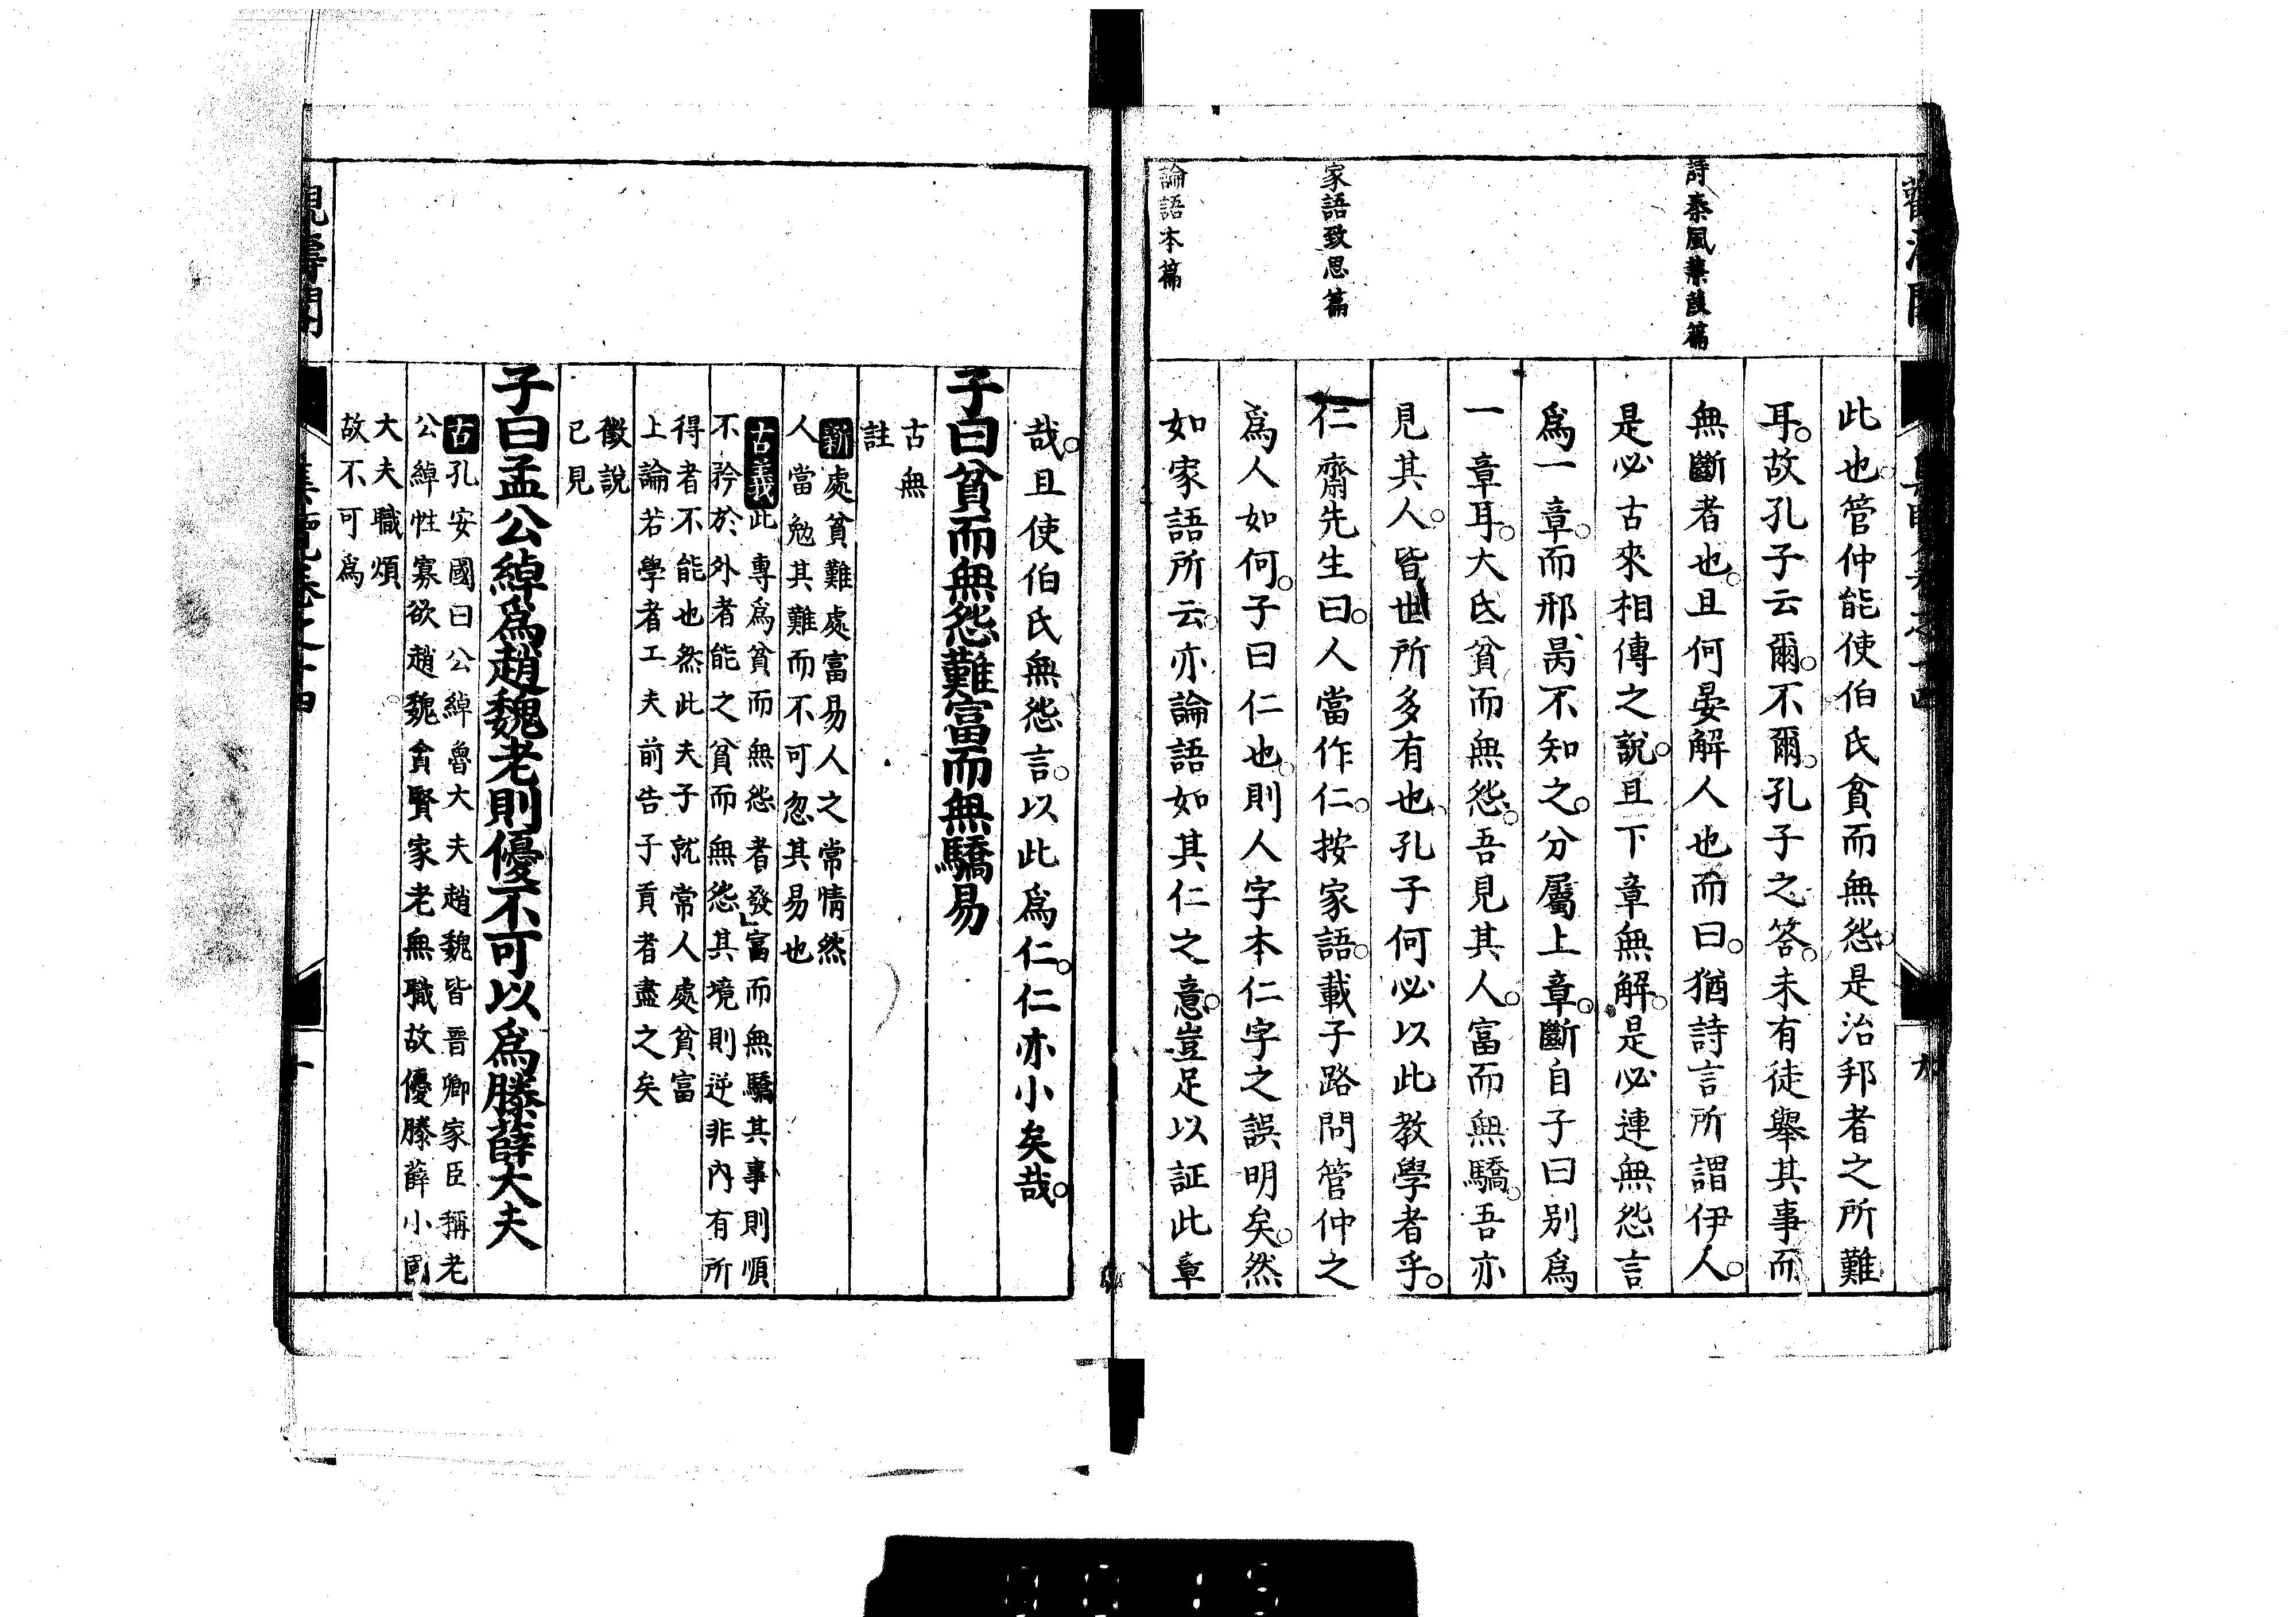 詩秦風蒹葭篇
家語致思篇
論語本篇
此也管仲能使伯氏貧而無怨是治邦者之所難
耳故孔子云爾不爾孔子之答未有徒舉其事而
無斷者也且何晏解人也而曰猶詩言所謂伊人
是必古來相傳之說且下章無解是必連無怨言
爲一章而邢昺不知之分屬上章斷自子曰別爲
一章耳大氐貧而無怨吾見其人富而無驕吾亦
見其人皆世所多有也孔子何必以此教學者乎
仁齋先生曰人當作仁按家語載子路問管仲之
爲人如何子曰仁也則人字本仁字之誤明矣然
如家語所云亦論語如其仁之意豈足以証此章
哉且使伯氏無怨言以此爲仁仁亦小矣哉
子曰貧而無怨難富而無驕易
古無
註
新處貧難處富易人之常情然
人當勉其難而不可忽其易也
古義此專爲貧而無怨者發富而無驕其事則順
不矜於外者能之貧而無怨其境則逆非內有所
得者不能也然此夫子就常人處貧富
上論若學者工夫前告子貢者盡之矣
徵說
已見
子曰孟公綽爲趙魏老則優不可以爲滕薛大夫
古孔安國曰公綽魯大夫趙魏皆晋卿家臣稱老
公綽性寡欲趙魏貪賢家老無職故優滕薛小國
大夫職煩
故不可爲